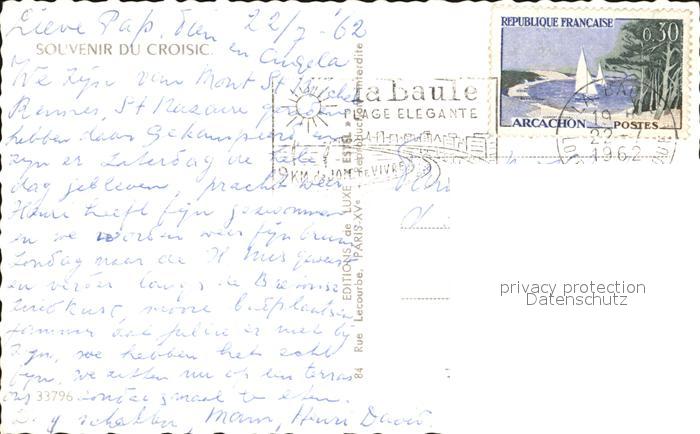 Lieve Pap, Tien 22/7-'62
en Angela
SOUVENIR DU CROISIC
We zijn van Mont St Michel
Rennes, St Nazaire
hebben daar gekampeerd en
zijn er Zaterdag de hele
dag gebleven, prachtig weer
Henri heeft fijn gezwommen
en we worden weer fijn bruin
Zondag naar de H Mis geweest
en verder langs de Bretonse
Zuidkust, mooie badplaatsen
jammer dat jullie er niet bij
zijn, we hebben het echt
fijn, we zitten nu op een terras
ons zondagsmaal te eten.
33796
Dag schatten, Mam, Henri David.
EDITIONS de LUXE "ESTEL" Reproduction interdite
84 Rue Lecourbe, PARIS-XVe
la baule
PLAGE ELEGANTE
9 KM de JOIE de VIVRE
REPUBLIQUE FRANÇAISE
0,30
ARCACHON POSTES
LA BAULE
1962
privacy protection
Datenschutz